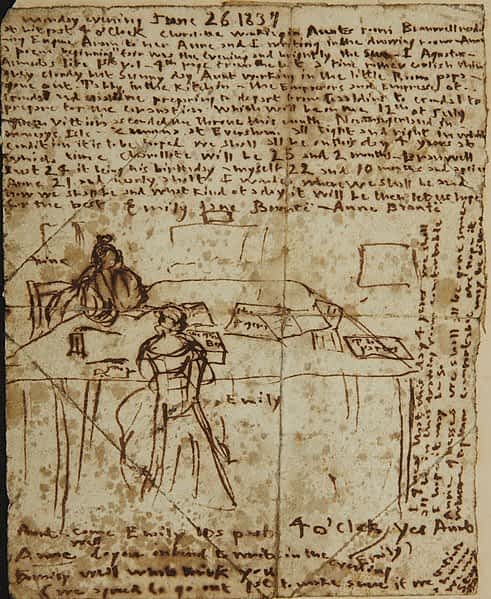 Monday evening June 26 1837
A bit past 4 o'Clock Charlotte working in Aunts room Branwell read
ing Eugene Aram to her Anne and I writing in the drawing room Anne
a poem beginning fair was the evening and brightly the Sun I Agustus
Almedas life 1st vol 4th page from the last fine rather coolish thin
grey cloudy but Sunny day Aunt working in the little Room papa
gone out Tabby in the Kitchin the Emperors and Empresses of
Gondal and Gaaldine preparing to depart from Gaaldine to Gondal to
prepare for the coranation which will be on the 12th of July
Queen Vittoria ascended the throne this month Northangerland in
Monceys Isle Zamorna at Eversham all tight and right in which
condition it is to be hoped we shall all be on this day 4 years at
which time Charllotte will be 25 and 2 months Branwell
just 24 it being his birthday myself 22 and 10 months and a peice
Anne 21 and nearly a half I wonder where we shall be and
how we shall be and what kind of a day it will be then let us hope
for the best Emily Jane Brontë Anne Brontë
Anne
The papers
The Tin Box
Emily
I guess that this day 4 years we shall
all be in this drawing room comfortable
I hope it may be so
Anne guesses we shall all be gone somewhere
comfortable we hope it
may be
Aunt come Emily Its past 4 o'Clock Yes Aunt
Anne well do you intend to write in the evening
Emily well what think you
(we agreed to go out 1st to make sure if we